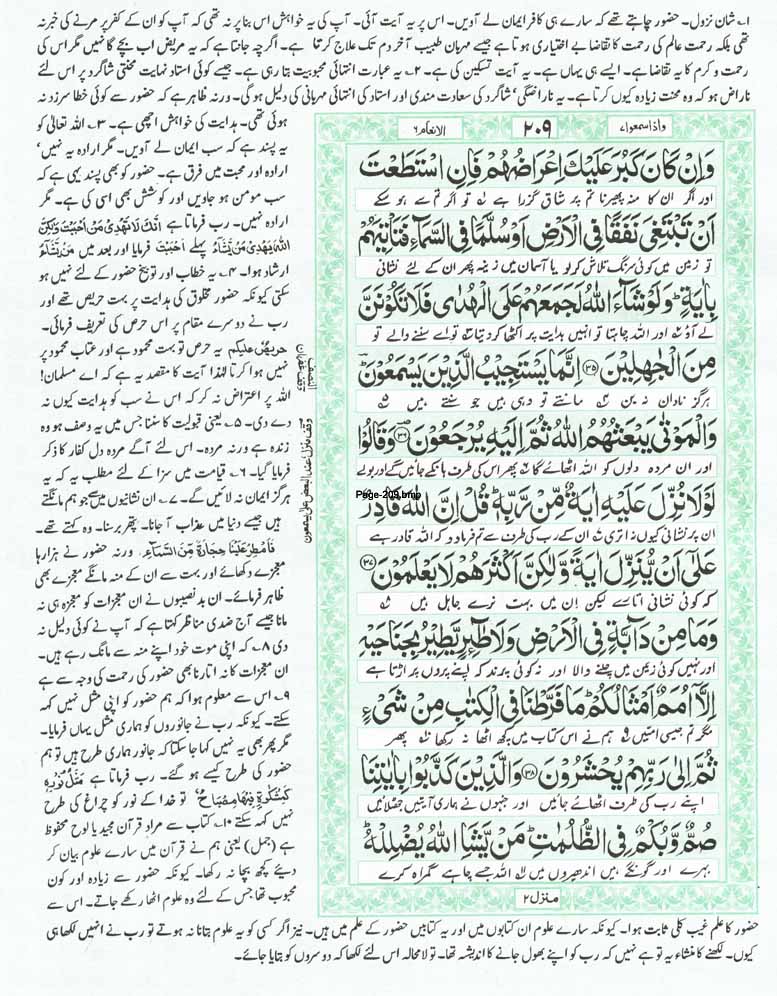 ۱؎ شان نزول۔ حضور چاہتے تھے کہ سارے ہی کافر ایمان لے آویں۔ اس پر یہ آیت آئی۔ آپ کی یہ خواہش اس بنا پر نہ تھی کہ آپ کو ان کے کفر پر مرنے کی خبر نہ
تھی بلکہ رحمت عالم کی رحمت کا تقاضا بے اختیاری ہوتا ہے جیسے مہربان طبیب آخر دم تک علاج کرتا ہے۔ اگرچہ جانتا ہے کہ یہ مریض اب بچے گا نہیں مگر اس کی
رحمت و کرم کا یہ تقاضا ہے۔ ایسے ہی یہاں ہے۔ یہ آیت تسکین کی ہے۔ ۲؎ یہ عبارت انتہائی محبوبیت بتا رہی ہے۔ جیسے کوئی استاد نہایت محنتی شاگرد پر اس لئے
ناراض ہو کہ وہ محنت زیادہ کیوں کرتا ہے۔ یہ ناراضگی' شاگرد کی سعادت مندی اور استاد کی انتہائی مہربانی کی دلیل ہو گی۔ ورنہ ظاہر ہے کہ حضور سے کوئی خطا سرزد نہ
ہوئی تھی۔ ہدایت کی خواہش اچھی ہے۔ ۳؎ اللہ تعالیٰ کو
یہ پسند ہے کہ سب ایمان لے آویں۔ مگر ارادہ یہ نہیں'
ارادہ اور محبت میں فرق ہے۔ حضور کو بھی پسند یہی ہے کہ
سب مومن ہو جاویں اور کوشش بھی اسی کی ہے۔ مگر
ارادہ نہیں۔ رب فرماتا ہے اِنَّکَ لَا تَھْدِیْ مَنْ اَحْبَبْتَ وَلٰکِنَّ
اللہَ یَھْدِیْ مَنْ یَّشَآءُ پہلے اَحْبَبْتَ فرمایا اور بعد میں مَنْ یَّشَآءُ
ارشاد ہوا۔ ۴؎ یہ خطاب اور توبیخ حضور کے لئے نہیں ہو
سکتی کیونکہ حضور مخلوق کی ہدایت پر بہت حریص تھے اور
رب نے دوسرے مقام پر اس حرص کی تعریف فرمائی۔
حَرِیْصٌ عَلَیْکُمْ یہ حرص تو بہت محمود ہے اور عتاب محمود پر
نہیں ہوا کرتا لہذا آیت کا مقصد یہ ہے کہ اے مسلمان!
اللہ پر اعتراض نہ کر کہ اس نے سب کو ہدایت کیوں نہ
دے دی۔ ۵؎ یعنی قبولیت کا سننا جس میں یہ وصف ہو وہ
زندہ ہے ورنہ مردہ۔ اس لئے آگے مردہ دل کفار کا ذکر
فرمایا گیا۔ ۶؎ قیامت میں سزا کے لئے مطلب یہ کہ یہ
ہرگز ایمان نہ لائیں گے۔ ۷؎ ان نشانیوں میں سے جو ہم مانگتے
ہیں جیسے دنیا میں عذاب آ جانا۔ پتھر برسنا۔ وہ کہتے تھے۔
فَاَمْطِرْ عَلَیْنَا حِجَارَۃً مِّنَ السَّمَآءِ۔ ورنہ حضور نے ہزارہا
معجزے دکھائے اور بہت سے ان کے منہ مانگے معجزے بھی
ظاہر فرمائے۔ ان بدنصیبوں نے ان معجزات کو معجزہ ہی نہ
مانا جیسے آج ضدی مناظر کہتا ہے کہ آپ نے کوئی دلیل نہ
دی ۸؎ کہ اپنی موت خود اپنے منہ سے مانگ رہے ہیں۔
ان معجزات کا نہ اتارنا بھی حضور کی رحمت کی وجہ سے ہے
۹؎ اس سے معلوم ہوا کہ ہم حضور کو اپنی مثل نہیں کہہ
سکتے۔ کیونکہ رب نے جانوروں کو ہماری مثل یہاں فرمایا۔
مگر پھر بھی یہ نہیں کہا جا سکتا کہ جانور ہماری طرح ہیں تو ہم
حضور کی طرح کیسے ہو گئے۔ رب فرماتا ہے مَثَلُ نُوْرِہٖ
کَمِشْکٰوۃٍ فِیْھَا مِصْبَاحٌ تو خدا کے نور کو چراغ کی طرح
نہیں کہہ سکتے ۱۰؎ کتاب سے مراد قرآن مجید یا لوح محفوظ
ہے (جمل) یعنی ہم نے قرآن میں سارے علوم بیان کر
دیئے کچھ بچا نہ رکھا۔ کیونکہ حضور سے زیادہ اور کون
محبوب تھا جس کے لئے وہ علوم اٹھا رکھے جاتے۔ اس سے
حضور کا علم غیب کلی ثابت ہوا۔ کیونکہ سارے علوم ان کتابوں میں اور یہ کتابیں حضور کے علم میں ہیں۔ نیز اگر کسی کو یہ علوم بتانا نہ ہوتے تو رب نے انہیں لکھا ہی
کیوں۔ لکھنے کا منشاء یہ تو ہے نہیں کہ رب کو اپنے بھول جانے کا اندیشہ تھا۔ تو لا محالہ اس لئے لکھا کہ دوسروں کو بتایا جائے۔
واذا سمعوا ۷
۲۰۹
الانعام ۶
وَاِنْ كَانَ كَبُرَ عَلَيْكَ اِعْرَاضُهُمْ فَاِنِ اسْتَطَعْتَ
اور اگر ان کا منہ پھیرنا تم پر شاق گزرا ہے تو اگر تم سے ہو سکے
اَنْ تَبْتَغِيَ نَفَقًا فِي الْاَرْضِ اَوْ سُلَّمًا فِي السَّمَآءِ فَتَاْتِيَهُمْ
تو زمین میں کوئی سرنگ تلاش کر لو یا آسمان میں زینہ پھر ان کے لئے نشانی
بِاٰيَةٍ ۚ وَلَوْ شَآءَ اللّٰهُ لَجَمَعَهُمْ عَلَى الْهُدٰى فَلَا تَكُوْنَنَّ
لے آؤ اور اللہ چاہتا تو انہیں ہدایت پر اکٹھا کر دیتا تو اے سننے والے تو
مِنَ الْجٰهِلِيْنَ ۳۵ اِنَّمَا يَسْتَجِيْبُ الَّذِيْنَ يَسْمَعُوْنَ
ہرگز نادان نہ بن مانتے تو وہی ہیں جو سنتے ہیں ۵
وَالْمَوْتٰى يَبْعَثُهُمُ اللّٰهُ ثُمَّ اِلَيْهِ يُرْجَعُوْنَ ۳۶ وَقَالُوْا
اور ان مردہ دلوں کو اللہ اٹھائے گا پھر اس کی طرف ہانکے جائیں گے اور بولے
لَوْلَا نُزِّلَ عَلَيْهِ اٰيَةٌ مِّنْ رَّبِّهٖ ۭ قُلْ اِنَّ اللّٰهَ قَادِرٌ
Page-209.bmp
ان پر نشانی کیوں نہ اتری ان کے رب کی طرف سے تم فرماؤ کہ اللہ قادر ہے
عَلٰٓى اَنْ يُّنَزِّلَ اٰيَةً وَّلٰكِنَّ اَكْثَرَهُمْ لَا يَعْلَمُوْنَ ۳۷
کہ کوئی نشانی اتارے لیکن ان میں بہت نرے جاہل ہیں
وَمَا مِنْ دَآبَّةٍ فِي الْاَرْضِ وَلَا طٰٓئِرٍ يَّطِيْرُ بِجَنَاحَيْهِ
اور نہیں کوئی زمین میں چلنے والا اور نہ کوئی پرند کہ اپنے پروں پر اڑتا ہے
اِلَّآ اُمَمٌ اَمْثَالُكُمْ ۭ مَا فَرَّطْنَا فِي الْكِتٰبِ مِنْ شَيْءٍ
مگر تم جیسی امتیں ہم نے اس کتاب میں کچھ اٹھا نہ رکھا پھر
ثُمَّ اِلٰى رَبِّهِمْ يُحْشَرُوْنَ ۳۸ وَالَّذِيْنَ كَذَّبُوْا بِاٰيٰتِنَا
اپنے رب کی طرف اٹھائے جائیں اور جنہوں نے ہماری آیتیں جھٹلائیں
صُمٌّ وَّبُكْمٌ فِي الظُّلُمٰتِ ۭ مَنْ يَّشَاِ اللّٰهُ يُضْلِلْهُ
بہرے اور گونگے ہیں اندھیروں میں اللہ جسے چاہے گمراہ کرے
منزل ۲